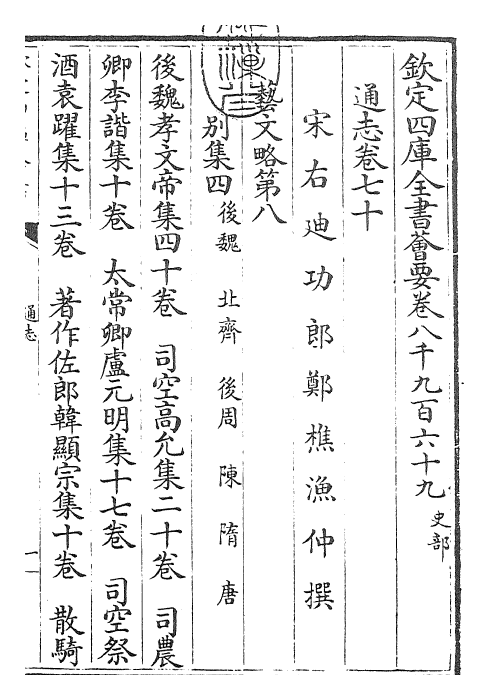 欽定四庫全書薈要卷八千九百六十九 史部
通志卷七十
宋右迪功郎鄭樵漁仲撰
藝文略第八
別集四 後魏 北齊 後周 陳 隋 唐
後魏孝文帝集四十卷 司空高允集二十卷 司農
卿李諧集十卷 太常卿盧元明集十七卷 司空祭
酒袁躍集十三卷 著作佐郎韓顯宗集十卷 散騎
通志
一